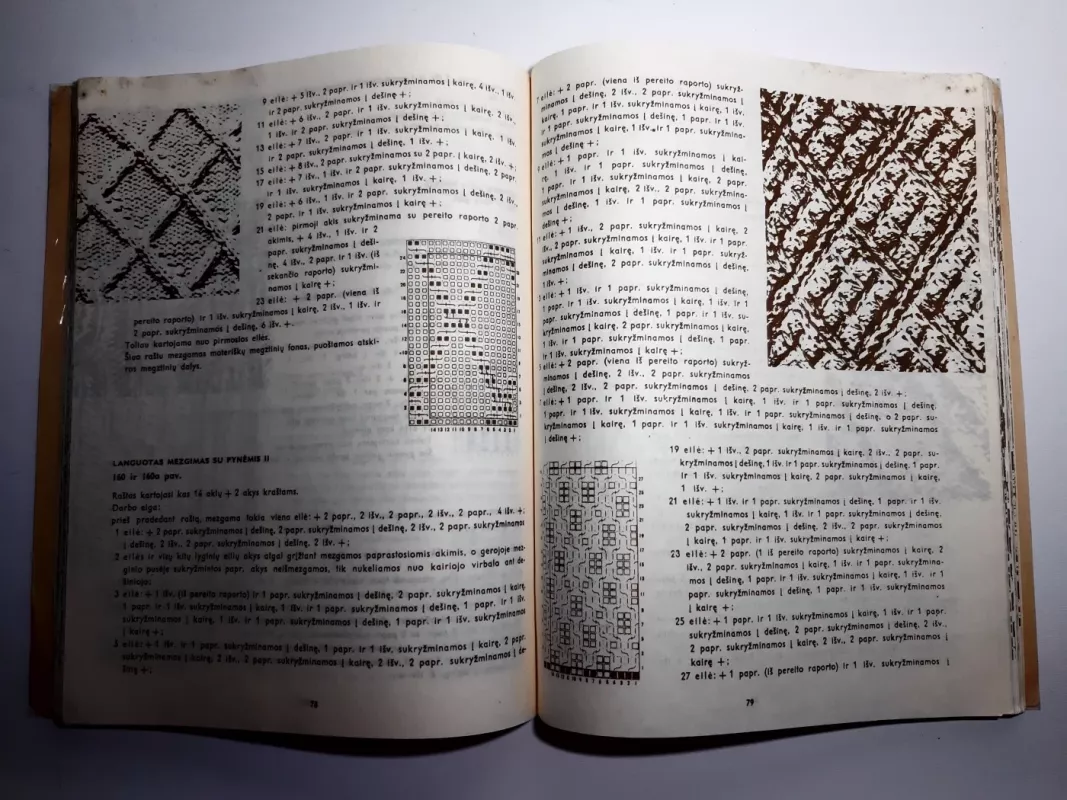 9 eilė: + 5 išv., 2 papr. ir 1 išv. sukryžminamos į kairę, 4 išv., 1 išv.
ir 2 papr. sukryžminamos į dešinę +;
11 eilė: + 6 išv., 2 papr. ir 1 išv. sukryžminamos į kairę, 2 išv.,
1 išv. ir 2 papr. sukryžminamos į dešinę +;
13 eilė: + 7 išv., 2 papr. ir 1 išv. sukryžminamos į kairę, 1 išv.
ir 2 papr. sukryžminamos į dešinę, 1 išv. +;
15 eilė: + 8 išv., 2 papr. sukryžminamos su 2 papr. į kairę, 2 išv. +;
17 eilė: + 7 išv., 1 išv. ir 2 papr. sukryžminamos į dešinę, 2 papr.
ir 1 išv. sukryžminamos į kairę, 1 išv. +;
19 eilė: + 6 išv., 1 išv. ir 2 papr. sukryžminamos į dešinę, 2 išv.,
2 papr. ir 1 išv. sukryžminamos į kairę +;
21 eilė: pirmoji akis sukryžminama su pereito raporto 2 papr.
akimis, + 4 išv., 1 išv. ir 2
papr. sukryžminamos į deši-
nę, 4 išv., 2 papr. ir 1 išv. (iš
sekančio raporto) sukryžmi-
namos į kairę +;
23 eilė: + 2 papr. (viena iš
pereito raporto) ir 1 išv. sukryžminamos į kairę, 2 išv., 1 išv. ir
2 papr. sukryžminamos į dešinę, 6 išv. +.
Toliau kartojama nuo pirmosios eilės.
Šiuo raštu mezgamas moteriškų megztinių fonas, puošiamos atski-
ros megztinių dalys.
LANGUOTAS MEZGIMAS SU PYNĖMIS II
160 ir 160a pav.
Raštas kartojasi kas 14 akių + 2 akys kraštams.
Darbo eiga:
prieš pradedant raštą, mezgama tokia viena eilė: + 2 papr., 2 išv., 2 papr., 2 išv., 2 papr., 4 išv. +;
1 eilė: + 2 papr. sukryžminamos į dešinę, 2 papr. sukryžminamos į dešinę, 2 išv., 2 papr. sukryžminamos
į dešinę, 2 išv., 2 papr. sukryžminamos į dešinę, 2 išv. +;
2 eilės ir visų kitų lyginių eilių akys atgal grįžtant mezgamos paprastosiomis akimis, o gerojoje mez-
ginio pusėje sukryžmintos papr. akys neišmezgamos, tik nukeliamos nuo kairiojo virbalo ant de-
šiniojo;
3 eilė: + 1 išv. (iš pereito raporto) ir 1 papr. sukryžminamos į dešinę, 2 papr. sukryžminamos į kairę,
1 papr. ir 1 išv. sukryžminamos į kairę, 1 išv. ir 1 papr. sukryžminamos į dešinę, 1 papr. ir 1 išv.
sukryžminamos į kairę, 1 išv. ir 1 papr. sukryžminamos į dešinę, 1 papr. ir 1 išv. sukryžminamos
į kairę +;
5 eilė: + 1 išv. ir 1 papr. sukryžminamos į dešinę, 1 papr. ir 1 išv. sukryžminamos į kairę, 2 papr.
sukryžminamos į kairę, 2 išv., 2 papr. sukryžminamos į kairę, 2 išv., 2 papr. sukryžminamos į de-
šinę +;
78
eilė: + 2 papr. (viena iš pereito raporto) sukryž-
minamos į dešinę, 2 išv., 2 papr. sukryžminamos į
kairę, 1 papr. ir 1 išv. sukryžminamos į kairę, 1 išv.
ir 1 papr. sukryžminamos į dešinę, 1 papr. ir 1 išv.
sukryžminamos į kairę, 1 išv. ir 1 papr. sukryžmina-
mos į dešinę +;
eilė: + 1 papr. ir 1 išv. sukryžminamos į kai-
rę, 1 išv. ir 1 papr. sukryžminamos į dešinę,
1 papr. ir 1 išv. sukryžminamos į kairę, 2 papr.
sukryžminamos į kairę, 2 išv., 2 papr. sukryž-
minamos į dešinę, 1 išv. ir 1 papr. sukryžminamos į
dešinę +;
eilė: + 1 išv., 2 papr. sukryžminamos į kairę, 2
išv., 2 papr. sukryžminamos į kairę, 1 išv. ir 1 papr.
sukryžminamos į dešinę, 1 išv. ir 1 papr. sukryž-
minamos į dešinę, 2 papr. sukryžminamos į dešinę,
1 išv. +;
eilė: + 1 išv. ir 1 papr. sukryžminamos į dešinę,
1 papr. ir 1 išv. sukryžminamos į kairę, 1 išv. ir 1
papr. sukryžminamos į dešinę, 1 papr. ir 1 išv. su-
kryžminamos į kairę, 2 papr. sukryžminamos į kairę,
1 papr. ir 1 išv. sukryžminamos į kairę +;
eilė: + 2 papr. (viena iš pereito raporto) sukryž-
minamos į dešinę, 2 išv., 2 papr. sukryžminamos
į dešinę, 2 išv., 2 papr. sukryžminamos į dešinę, 2 papr. sukryžminamos į dešinę, 2 išv. +;
eilė: + 1 papr. ir 1 išv. sukryžminamos į kairę, 1 išv. ir 1 papr. sukryžminamos į dešinę,
1 papr. ir 1 išv. sukryžminamos į kairę, 1 išv. ir 1 papr. sukryžminamos į dešinę, o 2 papr. su-
kryžminamos į kairę, 1 papr. ir 1 išv. sukryžminamos į kairę, 1 išv. ir 1 papr. sukryžminamos
į dešinę +;
19 eilė: + 1 išv., 2 papr. sukryžminamos į kairę, 2 išv., 2 papr. su-
kryžminamos į dešinę, 1 išv. ir 1 papr. sukryžminamos į dešinę, 1 papr.
ir 1 išv. sukryžminamos į kairę, 2 papr. sukryžminamos į kairę,
1 išv. +;
21 eilė: + 1 išv. ir 1 papr. sukryžminamos į dešinę, 1 papr. ir 1 išv.
sukryžminamos į kairę, 1 išv. ir 1 papr. sukryžminamos į dešinę,
2 papr. sukryžminamos į dešinę, 2 išv., 2 papr. sukryžminamos
į kairę, 1 papr. ir 1 išv. sukryžminamos į kairę +;
23 eilė: + 2 papr. (1 iš pereito raporto) sukryžminamos į kairę, 2
išv., 2 papr. sukryžminamos į kairę, 1 išv. ir 1 papr. sukryžmina-
mos į dešinę, 1 papr. ir 1 išv. sukryžminamos į kairę, 1 išv. ir 1
papr. sukryžminamos į dešinę, 1 papr. ir 1 išv. sukryžminamos
į kairę +;
25 eilė: + 1 papr. ir 1 išv. sukryžminamos į kairę, 1 išv. ir 1 papr.
sukryžminamos į dešinę, 2 papr. sukryžminamos į dešinę, 2 išv.,
2 papr. sukryžminamos į kairę, 2 išv., 2 papr. sukryžminamos į
kairę +;
27 eilė: + 1 papr. (iš pereito raporto) ir 1 išv. sukryžminamos į
79